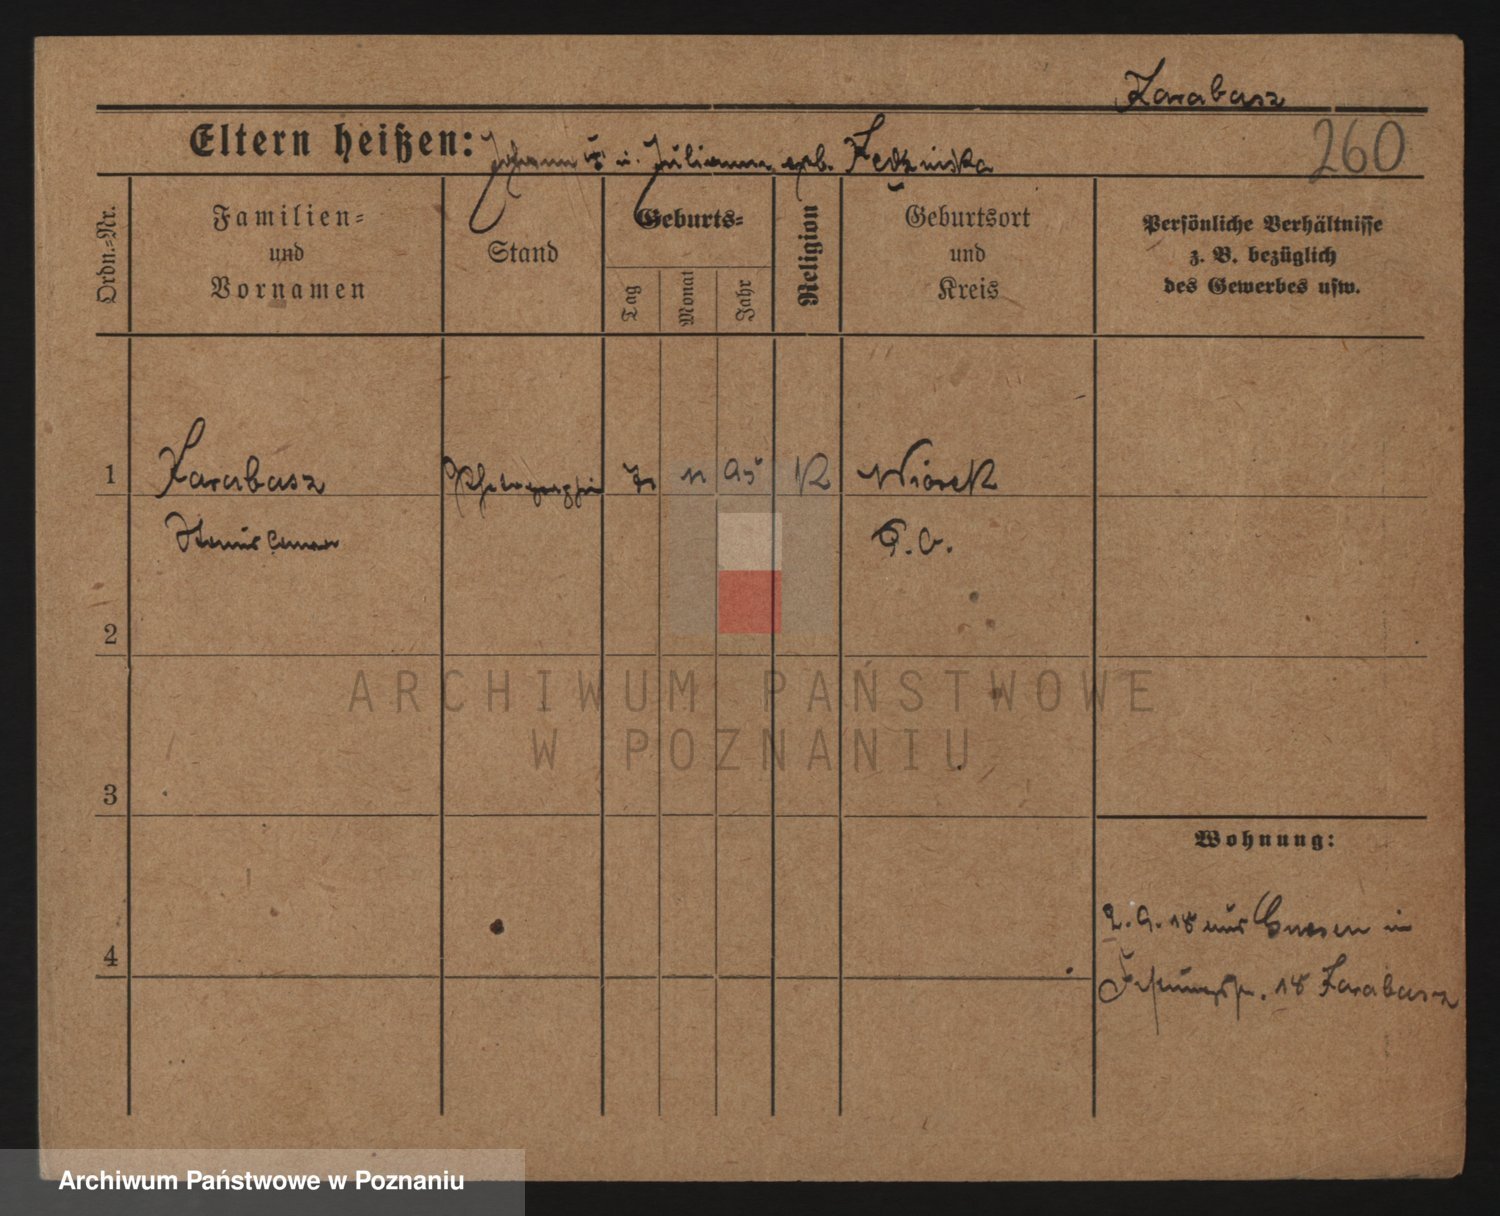 Karabasz
Eltern heißen: Johann u. Julianna geb.
260
Ordn.=Nr.
Familien=
und
Vornamen
Stand
Geburts=
Tag
Monat
Jahr
Religion
Geburtsort
und
Kreis
Persönliche Verhältnisse
z. B. bezüglich
des Gewerbes usw.
1 Karabasz 11 95 K Wiorek
Stanislaus
2
ARCHIWUM PAŃSTWOWE
W POZNANIU
3
Wohnung:
2. 9. 18 aus Gnesen in
4
18 Karabasz
Archiwum Państwowe w Poznaniu